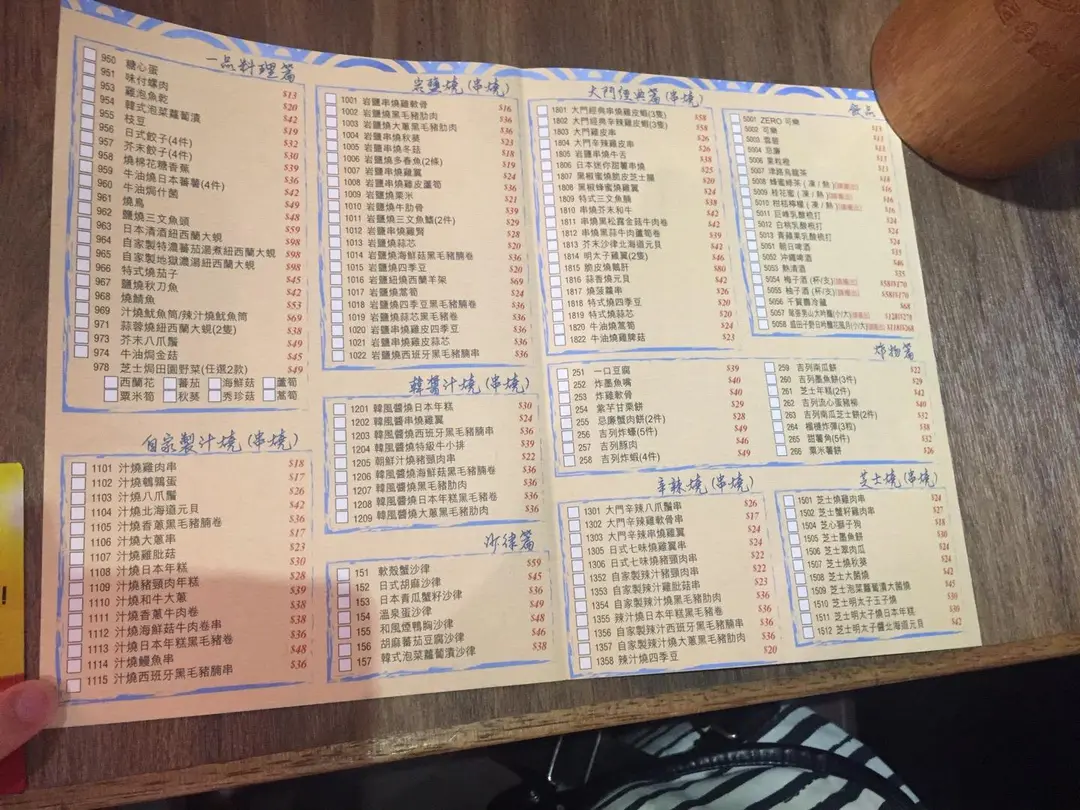 一品料理篇
950 糖心蛋 $13
951 味付螺肉 $20
953 雞泡魚乾 $42
954 韓式泡菜蘿蔔漬 $19
955 枝豆 $32
956 日式餃子(4件) $30
957 芥末餃子(4件) $39
958 燒棉花糖香蕉
959 牛油燒日本蕃薯(4件) $42
960 牛油焗什菌 $49
961 燒鳥 $48
962 鹽燒三文魚頭 $59
963 日本清酒紐西蘭大蜆 $98
964 自家製特濃蕃茄湯煮紐西蘭大蜆 $98
965 自家製地獄濃湯紐西蘭大蜆 $98
966 特式燒茄子 $45
967 鹽燒秋刀魚 $42
968 燒鯖魚 $53
969 汁燒魷魚筒/辣汁燒魷魚筒 $69
971 蒜蓉燒紐西蘭大蜆(2隻) $38
973 芥末八爪鬚 $49
974 牛油焗金菇 $45
978 芝士焗田園野菜(任選2款) $49
西蘭花 蕃茄 海鮮菇 蘆筍
粟米筍 秋葵 秀珍菇 萵筍
自家製汁燒(串燒)
1101 汁燒雞肉串 $18
1102 汁燒鵪鶉蛋 $17
1103 汁燒八爪鬚 $26
1104 汁燒北海道元貝 $42
1105 汁燒香蔥黑毛豬腩卷 $36
1106 汁燒大蔥串 $17
1107 汁燒雞肶菇 $23
1108 汁燒日本年糕 $30
1109 汁燒豬頸肉年糕 $28
1110 汁燒和牛大蔥 $39
1111 汁燒香蔥牛肉卷 $38
1112 汁燒海鮮菇牛肉卷串 $38
1113 汁燒日本年糕黑毛豬卷 $36
1114 汁燒鰻魚串 $48
1115 汁燒西班牙黑毛豬腩串 $36
岩鹽燒(串燒)
1001 岩鹽串燒雞軟骨 $16
1002 岩鹽燒黑毛豬肋肉 $36
1003 岩鹽燒大蔥黑毛豬肋肉 $36
1004 岩鹽串燒秋葵 $23
1005 岩鹽串燒冬菇 $18
1006 岩鹽燒多春魚(2條) $19
1007 岩鹽串燒雞翼 $24
1008 岩鹽串燒雞皮蘆筍 $36
1009 岩鹽燒粟米 $21
1010 岩鹽燒牛肋骨 $39
1011 岩鹽燒三文魚鰭(2件) $29
1012 岩鹽串燒雞腎 $28
1013 岩鹽燒蒜芯 $20
1014 岩鹽燒海鮮菇黑毛豬腩 $36
1015 岩鹽燒四季豆 $20
1016 岩鹽紐燒西蘭羊架 $69
1017 岩鹽燒萵筍 $24
1018 岩鹽燒四季豆黑毛豬腩卷 $36
1019 岩鹽燒蒜芯黑毛豬卷 $36
1020 岩鹽串燒雞皮四季豆 $36
1021 岩鹽燒蒜芯雞皮卷 $36
1022 岩鹽燒西班牙黑毛豬腩串 $36
韓醬汁燒(串燒)
1201 韓風醬燒日本年糕 $30
1202 韓風醬串燒雞翼 $24
1203 韓風醬燒西班牙黑毛豬腩串 $36
1204 韓風醬燒特級牛小排 $39
1205 朝鮮汁燒豬頸肉串 $22
1206 韓風醬燒海鮮菇黑毛豬腩卷 $36
1207 韓風醬燒黑毛豬肋肉 $36
1208 韓風醬燒日本年糕黑毛豬卷 $36
1209 韓風醬燒大蔥黑毛豬肋肉 $36
沙律篇
151 軟殼蟹沙律 $59
152 日式胡麻沙律 $45
153 日本青瓜蟹籽沙律 $36
154 溫泉蛋沙律 $49
155 和風煙鴨胸沙律 $48
156 胡麻蕃茄豆腐沙律 $46
157 韓式泡菜蘿蔔漬沙律 $38
大門經典篇(串燒)
1801 大門經典串燒雞皮蝦(3隻) $58
1802 大門經典辛辣雞皮蝦(3隻) $58
1803 大門雞皮串 $26
1804 大門辛辣雞皮串 $26
1805 岩鹽串燒牛舌 $38
1806 日本迷你甜薯串燒 $25
1807 黑椒蜜燒脆皮芝士腸 $20
1808 黑椒蜂蜜燒雞翼 $24
1809 特式三文魚腩 $38
1810 串燒芥末和牛 $42
1811 串燒黑松露金菇牛肉卷 $42
1812 串燒黑蒜牛肉蘆筍卷 $39
1813 芥末沙律北海道元貝 $42
1814 明太子雞翼(2隻) $46
1815 脆皮燒鵝肝 $80
1816 蒜香燒元貝 $42
1817 燒菠蘿串 $26
1818 特式燒四季豆 $20
1819 特式燒蒜芯 $20
1820 牛油燒萵筍 $24
1822 牛油燒雞脾菇 $23
飲品
5001 ZERO 可樂 $13
5002 可樂 $13
5003 雪碧 $13
5004 忌廉 $13
5006 菓粒橙 $13
5007 津路烏龍茶 $18
5008 蜂蜜綠茶(凍/熱) $16
5009 桂花蜜(凍/熱) $16
5010 柑桔檸檬(凍/熱) $16
5011 巨峰乳酸梳打 $24
5012 白桃乳酸梳打 $24
5013 青蘋果乳酸梳打 $24
5051 朝日啤酒 $35
5052 沖繩啤酒 $46
5053 熱清酒 $35
5054 梅子酒(杯/支) $58/$170
5055 柚子酒(杯/支) $58/$170
5056 千賀壽冷藏 $68
5057 尾張男山大吟釀(小/大) $128/$278
5058 盛田千野日吟釀花風月(小/大) $118/$268
炸物篇
251 一口豆腐 $39
252 炸墨魚嘴 $40
253 炸雞軟骨 $40
254 紫芋甘栗餅 $29
255 忌廉蟹肉餅(2件) $28
256 吉列炸蠔(5件) $49
257 吉列豚肉 $46
258 吉列炸蝦(4件) $49
259 吉列南瓜餅 $22
260 吉列墨魚餅(3件) $29
261 芝士年糕(2件) $42
262 吉列流心蛋豬柳 $40
263 吉列南瓜芝士餅(2件) $32
264 楓糖炸彈(3粒) $38
265 甜薯角(5件) $32
266 粟米薯餅 $26
辛辣燒(串燒)
1301 大門辛辣八爪鬚串 $26
1302 大門辛辣雞軟骨串 $17
1303 大門辛辣串燒雞翼 $24
1305 日式七味燒雞翼串 $24
1306 日式七味燒豬頸肉串 $22
1352 自家製辣汁豬頸肉串 $22
1353 自家製辣汁雞肶菇串 $23
1354 自家製辣汁燒黑毛豬肋肉 $36
1355 辣汁燒日本年糕黑毛豬卷 $36
1356 自家製辣汁西班牙黑毛豬腩串 $36
1357 自家製辣汁燒大蔥黑毛豬肋肉 $36
1358 辣汁燒四季豆 $20
芝士燒(串燒)
1501 芝士燒雞肉串 $24
1502 芝士蟹籽雞肉串 $27
1504 芝心獅子狗 $18
1505 芝士墨魚餅 $30
1506 芝士翠肉瓜 $24
1507 芝士燒秋葵 $24
1508 芝士大菌燒 $42
1509 芝士泡菜蘿蔔漬大菌燒 $45
1510 芝士明太子玉子燒 $30
1511 芝士明太子燒日本年糕 $30
1512 芝士明太子醬北海道元貝 $42